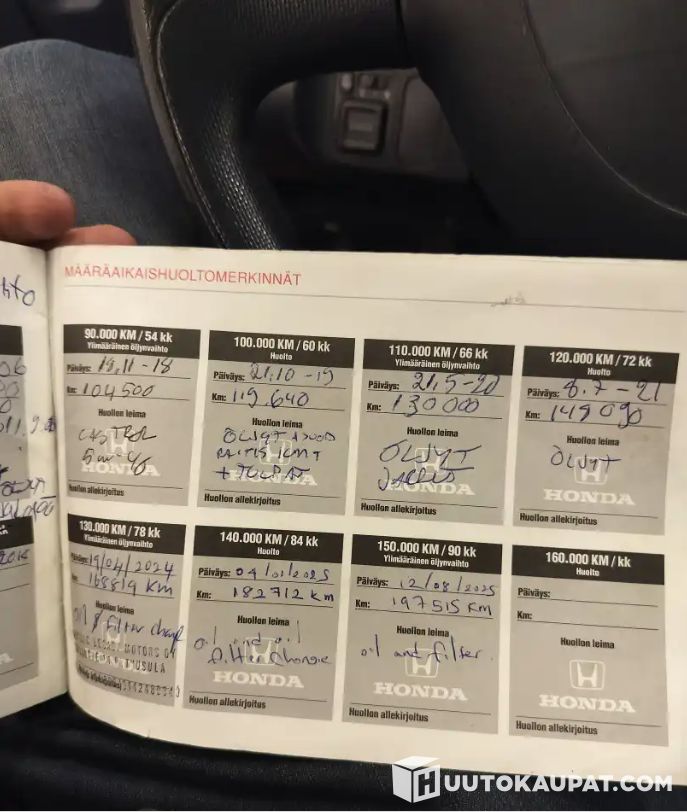 MÄÄRÄAIKAISHUOLTOMERKINNÄT
90.000 KM / 54 kk
Ylimääräinen öljynvaihto
Päiväys: 19.11-18
Km: 104500
Huollon leima
CASTROL
5w-40
HONDA
Huollon allekirjoitus
100.000 KM / 60 kk
Huolto
Päiväys: 21.10-19
Km: 119.640
Huollon leima
ÖLJYT
+ TULPAT
HONDA
Huollon allekirjoitus
110.000 KM / 66 kk
Ylimääräinen öljynvaihto
Päiväys: 21.5-20
Km: 130000
Huollon leima
ÖLJYT
HONDA
Huollon allekirjoitus
120.000 KM / 72 kk
Huolto
Päiväys: 8.7-21
Km: 149090
Huollon leima
ÖLJYT
HONDA
Huollon allekirjoitus
130.000 KM / 78 kk
Ylimääräinen öljynvaihto
Päiväys: 19/04/2024
Km: 168819 KM
Huollon leima
oil & filter
MOTORS OY
HONDA
140.000 KM / 84 kk
Huolto
Päiväys: 04/01/2025
Km: 182712 km
Huollon leima
oil and oil
filter change
HONDA
Huollon allekirjoitus
150.000 KM / 90 kk
Ylimääräinen öljynvaihto
Päiväys: 12/08/2025
Km: 197515 KM
Huollon leima
oil and filter.
HONDA
Huollon allekirjoitus
160.000 KM / kk
Huolto
Päiväys:
Km:
Huollon leima
HONDA
Huollon allekirjoitus
HUUTOKAUPAT.COM